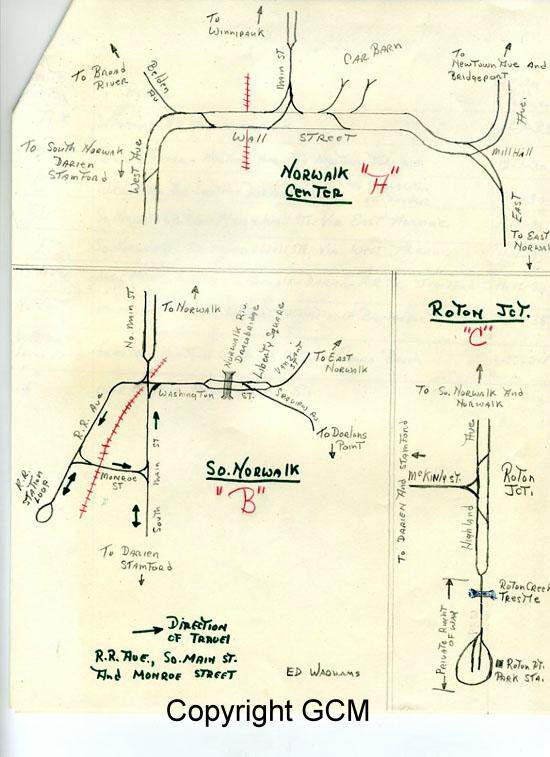 To
Winnipauk
To Broad
River
Belden
AV
Main ST
CAR BARN
To
NewTown Ave And
Bridgeport
Ave.
Mill Hill
WAll STREET
To South Norwalk
DARIEN
STAMFORD
West Ave
NORWALK
CENTER
"A"
EAST
To EAST
Norwalk
No. MAIN ST.
To NORWALK
NORWALK RIV.
DRAWBRIDGE
Liberty Square
To EAST
NORWALK
WASHINGTON ST.
To Dorlons
Point
R.R. Ave
R.R.
STATION
LOOP
MONROE
ST
South Main ST
So. NORWALK
"B"
To DARIEN
STAMFORD
DIRECTION
OF TRAVEl
R.R. AVE., So. MAIN ST.
And MONROE STREET
ED WADHAMS
ROTON JCT.
"C"
To So. NORWALK AND
NORWALK
To DARIEN AND STAMFORD
McKinley ST.
Highland Ave
ROTON
JCT.
ROTON CREEK
TRESTLE
PRIVATE RIGHT
OF WAY
ROTON PT.
PARK STA.
Copyright GCM